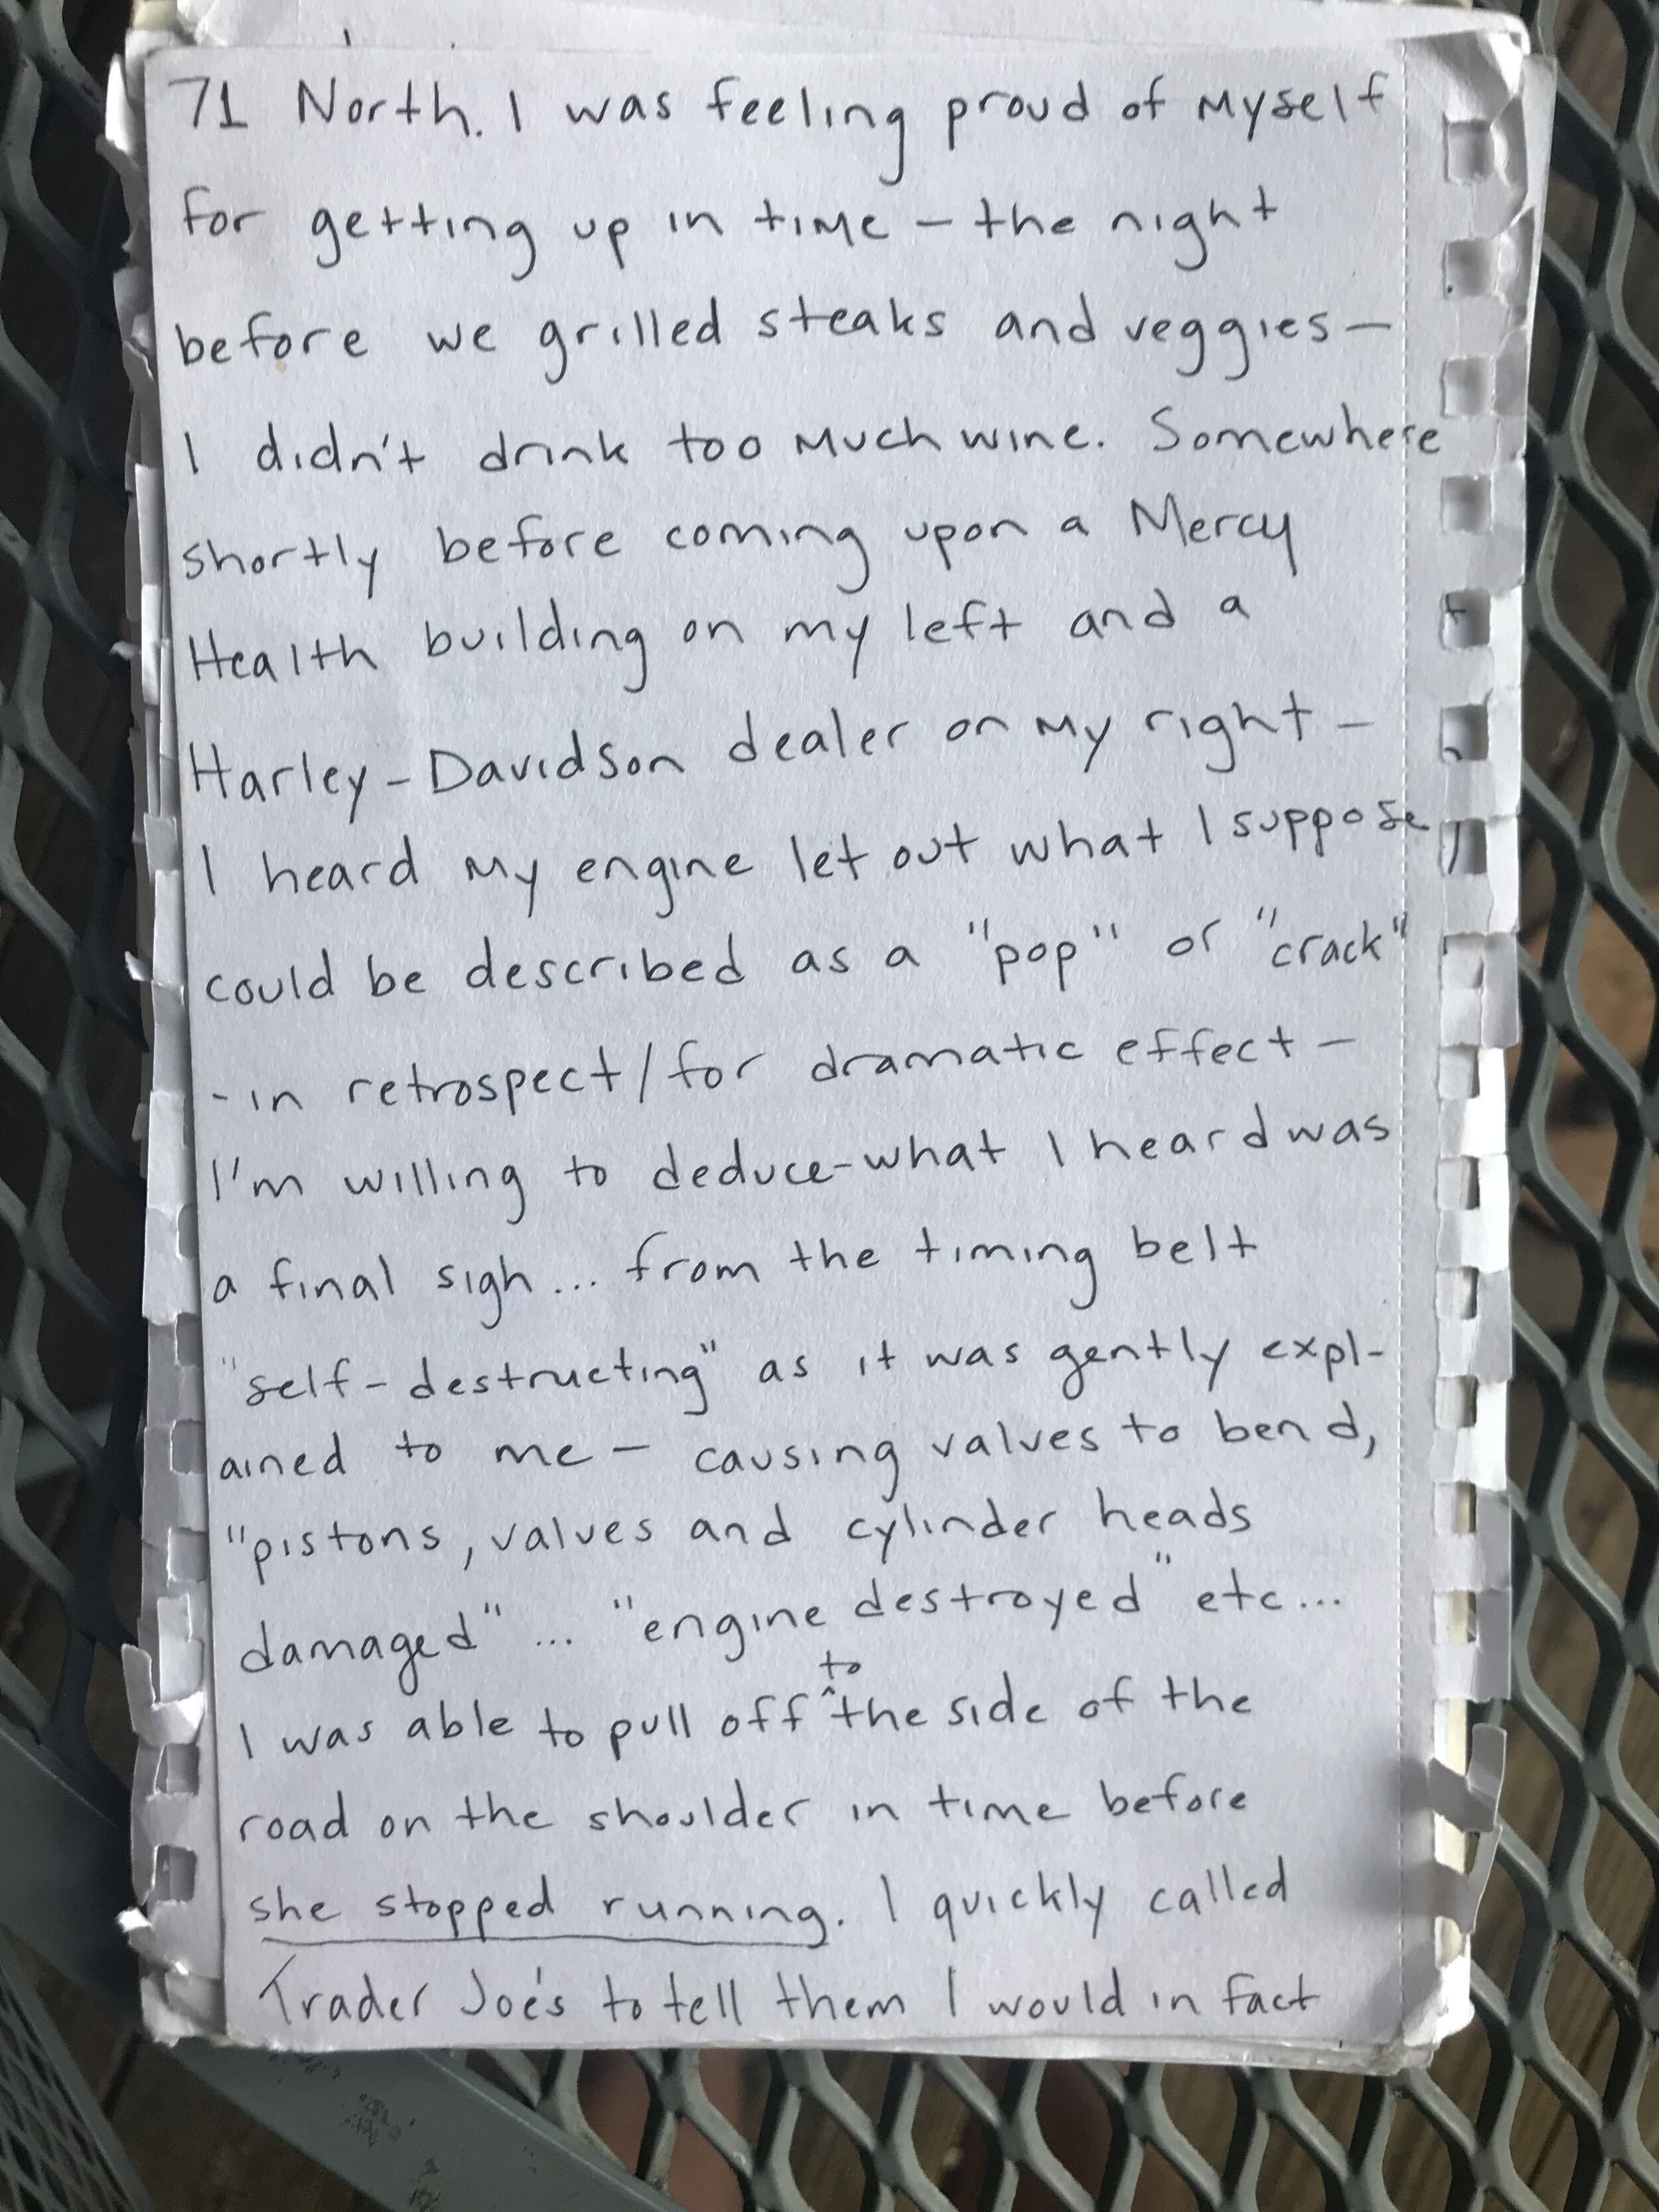 71 North. I was feeling proud of myself
for getting up in time – the night
before we grilled steaks and veggies –
I didn't drink too much wine. Somewhere
shortly before coming upon a Mercy
Health building on my left and a
Harley-Davidson dealer on my right –
I heard my engine let out what I suppose,
could be described as a "pop" or "crack"
- in retrospect/for dramatic effect –
I'm willing to deduce-what I heard was
a final sigh... from the timing belt
"self-destructing" as it was gently expl-
ained to me – causing valves to bend,
"pistons, valves and cylinder heads
damaged"... "engine destroyed" etc...
to
I was able to pull off ^ the side of the
road on the shoulder in time before
she stopped running. I quickly called
Trader Joe's to tell them I would in fact